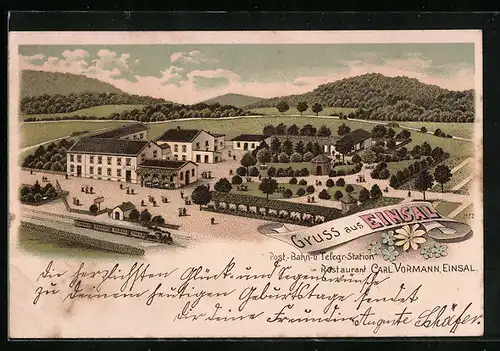 Gruss aus EINSAL
Post-, Bahn- u. Telegr.-Station
Restaurant CARL VORMANN, EINSAL.
die herzlichsten Glück- und Segenswünsche
zu deinem heutigen Geburtstage sendet
dir deine Freundin Auguste Schäfer.